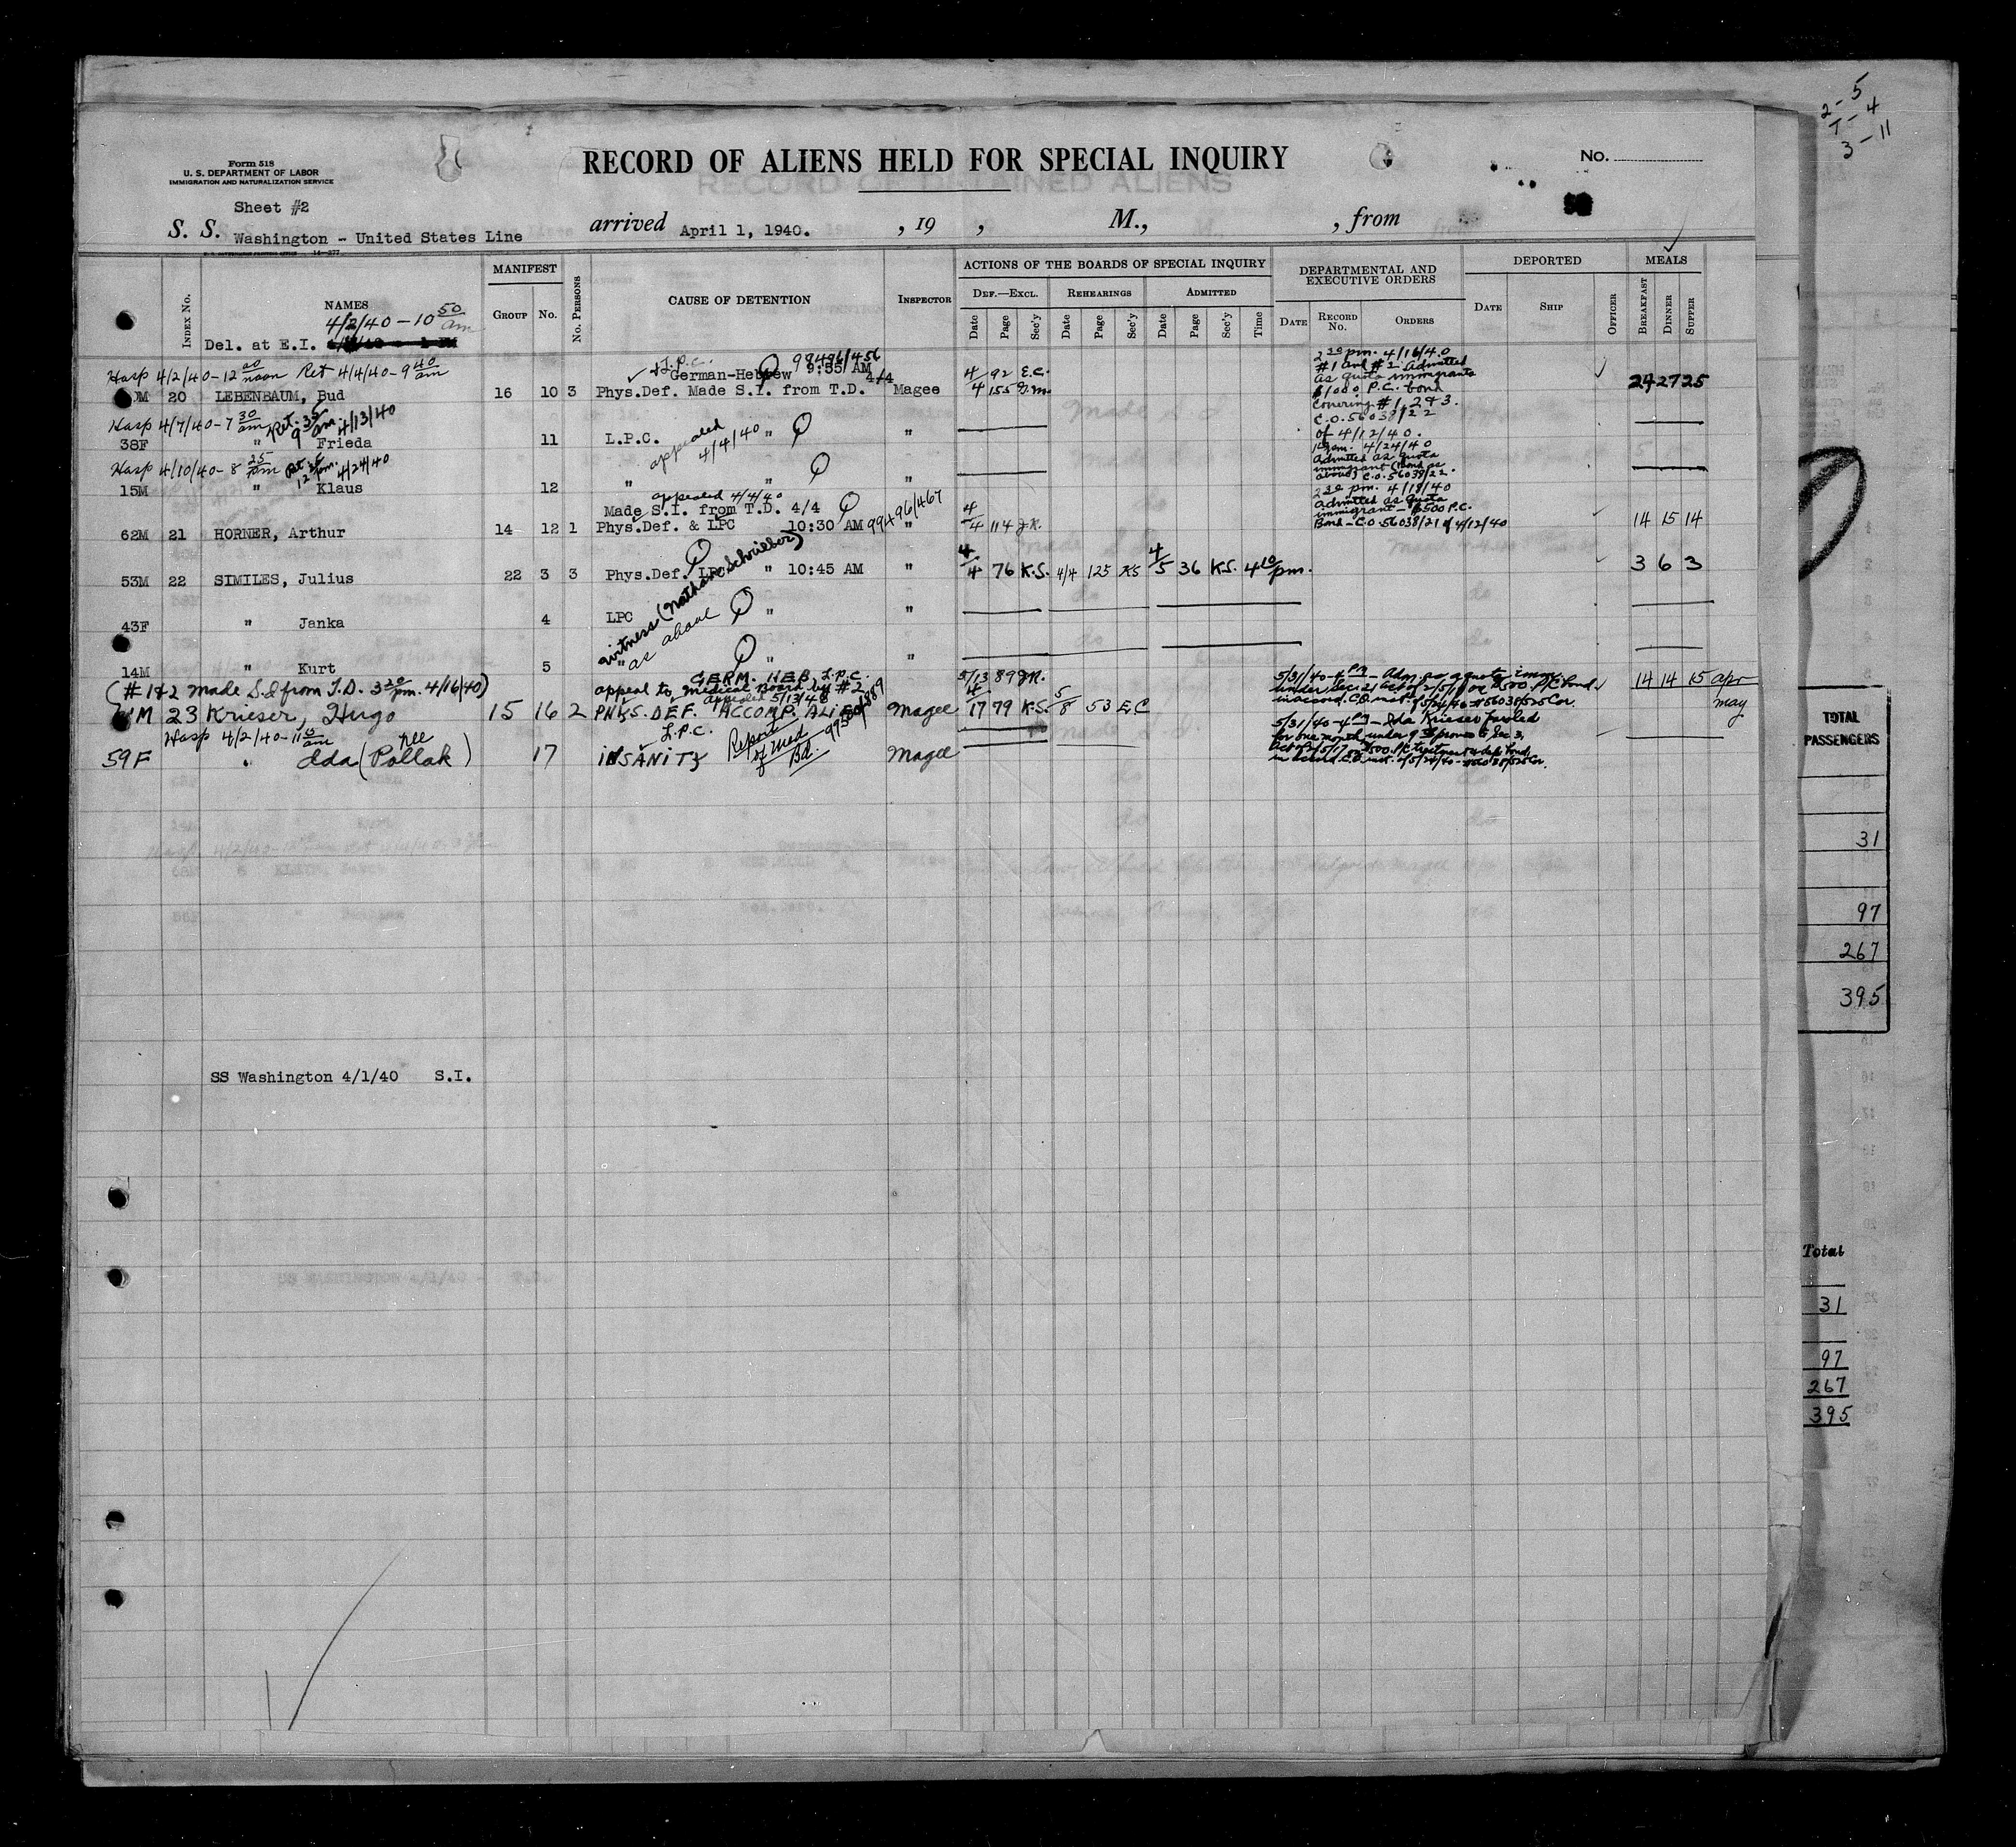 2 - 5
T - 4
3 - 11
Form 518
U. S. DEPARTMENT OF LABOR
IMMIGRATION AND NATURALIZATION SERVICE
RECORD OF ALIENS HELD FOR SPECIAL INQUIRY
No.
Sheet #2
S. S. Washington - United States Line arrived April 1, 1940. , 19 , M., , from
MANIFEST ACTIONS OF THE BOARDS OF SPECIAL INQUIRY DEPARTMENTAL AND EXECUTIVE ORDERS DEPORTED MEALS
Index No. NAMES Group No. No. Persons CAUSE OF DETENTION Inspector Def.—Excl. Rehearings Admitted
Date Page Sec'y Date Page Sec'y Date Page Sec'y Time Date Record No. Orders Date Ship Officer Breakfast Dinner Supper
4/2/40 - 10 50 am
Del. at E.I.
L.P.C. 99496/456
German-Hebrew 9:55 AM
Hosp 4/2/40-12 00 noon Ret 4/4/40-9 40 am
20 LEBENBAUM, Bud 16 10 3 Phys.Def. Made S.I. from T.D. 4/4 Magee
4/4 92 E.C.
155 G.M.
2 30 pm. 4/16/40
#1 and #2 Admitted
as quota immigrants
$1000 P.C. bond
Covering #1, 2 & 3.
C.O. 56038/22
of 4/12/40.
24 27 25
Hosp 4/7/40-7 30 am Ret. 9 35 am. 4/13/40
38F " Frieda 11 L.P.C. " "
appealed 4/4/40
Hosp 4/10/40-8 25 pm Ret 12 pm. 4/24/40
15M " Klaus 12 " " "
pm. 4/24/40
admitted as quota
immigrant (Bond as
above) C.O. 56038/22.
appealed 4/4/40
Made S.I. from T.D. 4/4
62M 21 HORNER, Arthur 14 12 1 Phys.Def. & LPC 10:30 AM 99496/467 "
4/4 114 J.K.
2 30 pm. 4/18/40
admitted as quota
immigrant - $500 P.C.
Bond - C.O. 56038/21 of 4/12/40
14 15 14
53M 22 SIMILES, Julius 22 3 3 Phys.Def. LPC " 10:45 AM "
4/4 76 K.S. 4/4 125 KS 4/5 36 K.S. 4 10 pm.
3 6 3
witness (Nathan Schrieber)
43F " Janka 4 LPC " "
" as above
14M " Kurt 5 " " "
GERM. HEB. L.P.C.
(#1&2 made S.I from T.D. 3 20 pm. 4/16/40)
appeal to medical Board by #2
appealed 5/13/40
23 Krieser, Hugo 15 16 2 PHYS. DEF. ACCOMP. ALIEN Magee
5/13 89 J.K.
4/17 79 K.S. 5/8 53 E.C
5/31/40-4 pm - Adm. as a quota imm.
under Sec. 21 act of 2/5/17 on $500. P/C bond
in accord. C.O. inst. of 5/24/40
14 14 15 apr
may
Hosp 4/2/40-11 am
L.P.C.
59F " Ida (née Pollak) 17 INSANITY Magee
Report of Med Bd.
5/31/40-4 pm - Ida Krieser paroled
for one month under 9th proviso to Sec 3,
in accord. C.O. inst. of 5/24/40
SS Washington 4/1/40 S.I.
TOTAL PASSENGERS
31
97
267
395
Total
31
97
267
395